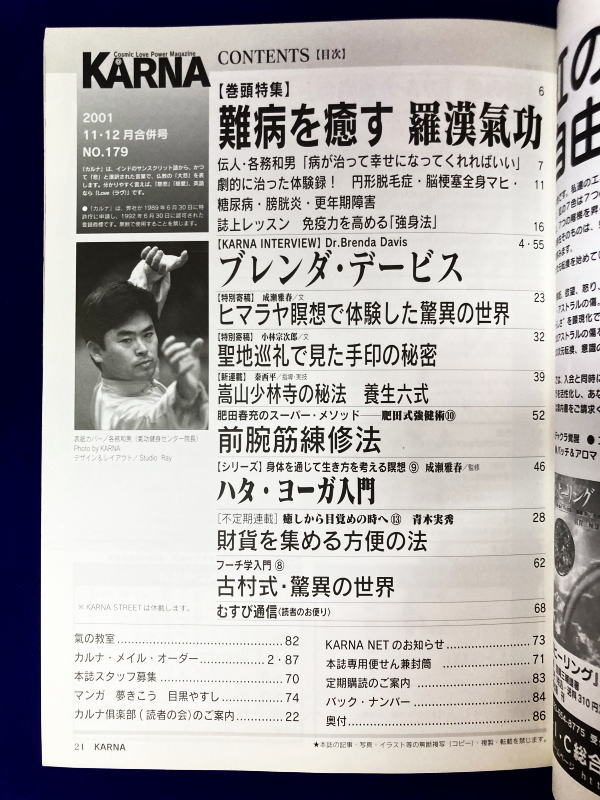 Cosmic Love Power Magazine
KARNA
CONTENTS【目次】
2001
11・12月合併号
NO.179
「カルナ」は、インドのサンスクリット語から、かつ
て「悲」と漢訳された言葉で、仏教の「大悲」を表
します。分かりやすく言えば、「慈悲」「慈愛」、英語
なら「Love（ラヴ）」です。
●「カルナ」は、弊社が1989年6月30日に特
許庁に申請し、1992年6月30日に認可された
登録商標です。無断で使用することを禁じます。
表紙カバー／各務和男（氣功健身センター院長）
Photo by KARNA
デザイン&レイアウト／Studio Ray
※ KARNA STREETは休載します。
【巻頭特集】 6
難病を癒す 羅漢氣功
伝人・各務和男「病が治って幸せになってくれればいい」 7
劇的に治った体験録！ 円形脱毛症・脳梗塞全身マヒ・ 11
糖尿病・膀胱炎・更年期障害
誌上レッスン 免疫力を高める「強身法」 16
【KARNA INTERVIEW】Dr.Brenda Davis 4・55
ブレンダ・デービス
【特別寄稿】 成瀬雅春／文 23
ヒマラヤ瞑想で体験した驚異の世界
【特別寄稿】 小林宗次郎／文 32
聖地巡礼で見た手印の秘密
【新連載】 秦西平／指導・実技 39
嵩山少林寺の秘法 養生六式
肥田春充のスーパー・メソッド──肥田式強健術⑩ 52
前腕筋練修法
【シリーズ】身体を通じて生き方を考える瞑想⑨ 成瀬雅春／監修 46
ハタ・ヨーガ入門
［不定期連載］癒しから目覚めの時へ⑬ 青木実秀 28
財貨を集める方便の法
フーチ学入門⑧ 62
古村式・驚異の世界
むすび通信（読者のお便り） 68
氣の教室 82
カルナ・メイル・オーダー 2・87
本誌スタッフ募集 70
マンガ 夢きこう 目黒やすし 74
カルナ倶楽部（読者の会）のご案内 22
KARNA NETのお知らせ 73
本誌専用便せん兼封筒 71
定期購読のご案内 83
バック・ナンバー 84
奥付 86
21 KARNA
★本誌の記事・写真・イラスト等の無断複写（コピー）・複製・転載を禁じます。